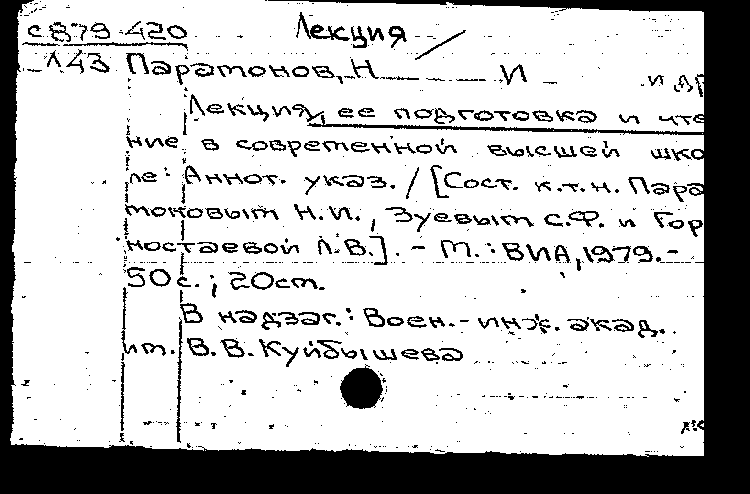 с879420 Лекция
Л43 Парамонов, Н И и др
Лекция, ее подготовка и чте
ние в современной высшей шко
ле: Аннот. указ. / [Сост. к.т.н. Пара
моновым Н.И., Зуевым С.Ф. и Гор
ностаевой Л.В.]. - М.: ВИА, 1979.-
50с.; 20см.
В надзаг.: Воен.-инж. акад.
им. В.В. Куйбышева